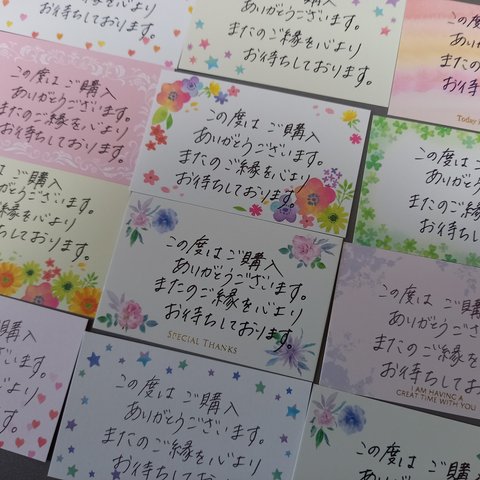 またのご縁を心より
お待ちしております。
ありがとうございます。
またのご縁を心より
お待ちしております。
この度は
ありがとう
またのご
お待ちし
Today
この度は ご購入
ありがとうございます。
またのご縁を心より
お待ちしております。
この度は ご購入
ありがとうございます。
またのご縁を心より
お待ちしております。
この度は ご購
ありがとうござ
またのご縁を
お待ちして
度は ご購入
がとうございます。
のご縁を心より
しております。
この度は ご購入
ありがとうございます。
またのご縁を心より
お待ちしております。
SPECIAL THANKS
この度は ご購入
ありがとうござい
またのご縁を心
お待ちしており
I AM HAVING A
GREAT TIME WITH YOU
ご購入
ございます。
縁を心より
おります。
この度は ご購入
ありがとうございます。
またのご縁を心より
お待ちしております。
この度は ご購入
ありがとう